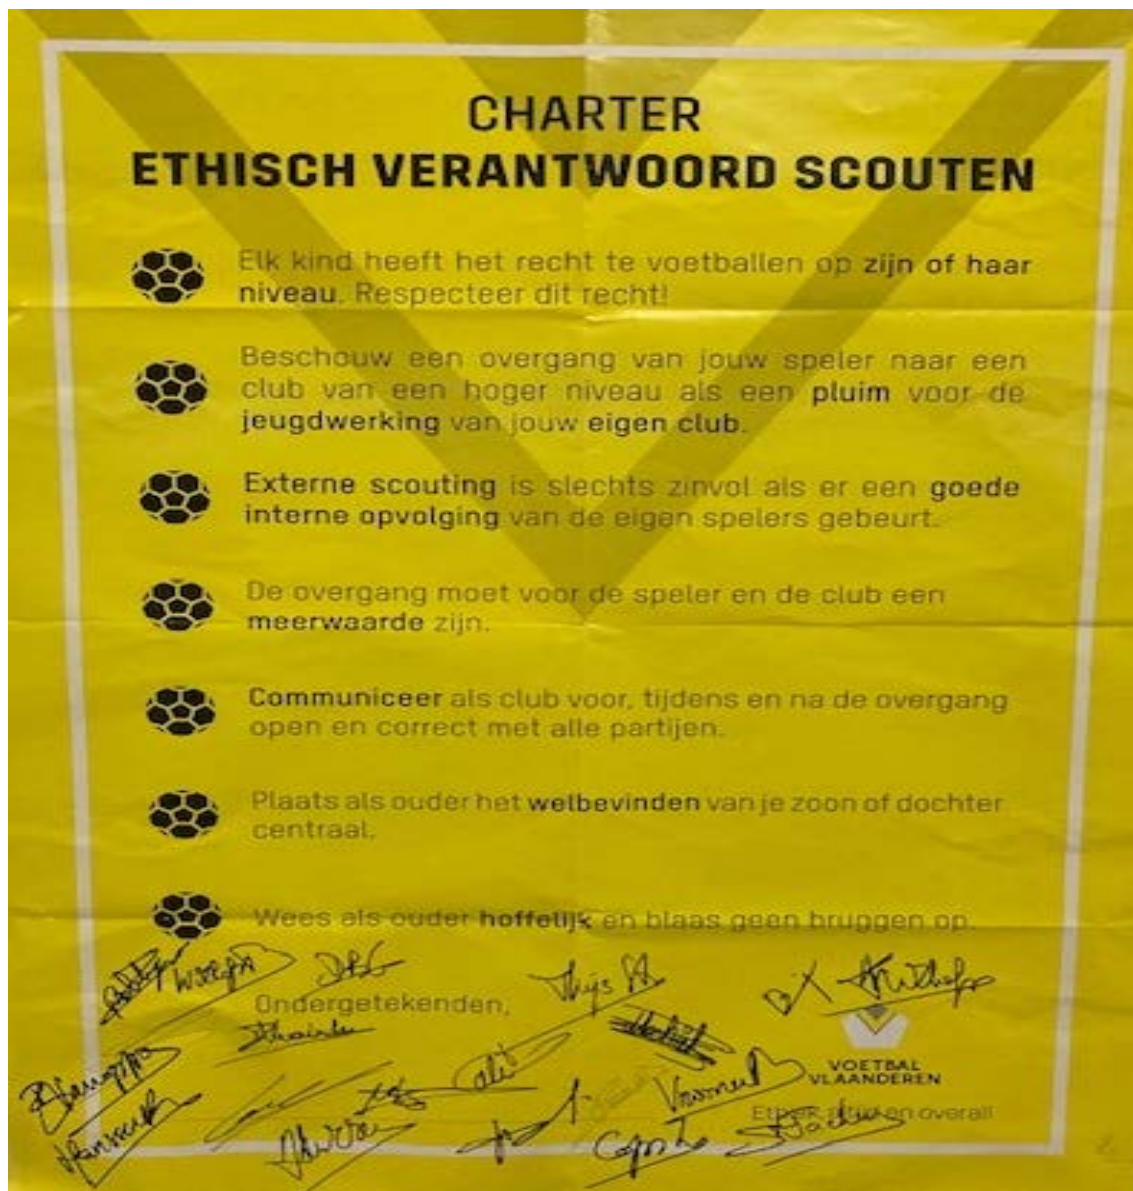 CHARTER
ETHISCH VERANTWOORD SCOUTEN
Elk kind heeft het recht te voetballen op zijn of haar
niveau. Respecteer dit recht!
Beschouw een overgang van jouw speler naar een
club van een hoger niveau als een pluim voor de
jeugdwerking van jouw eigen club.
Externe scouting is slechts zinvol als er een goede
interne opvolging van de eigen spelers gebeurt.
De overgang moet voor de speler en de club een
meerwaarde zijn.
Communiceer als club voor, tijdens en na de overgang
open en correct met alle partijen.
Plaats als ouder het welbevinden van je zoon of dochter
centraal.
Wees als ouder hoffelijk en blaas geen bruggen op.
Thijs
Ondergetekenden,
VOETBAL
VLAANDEREN
en overall